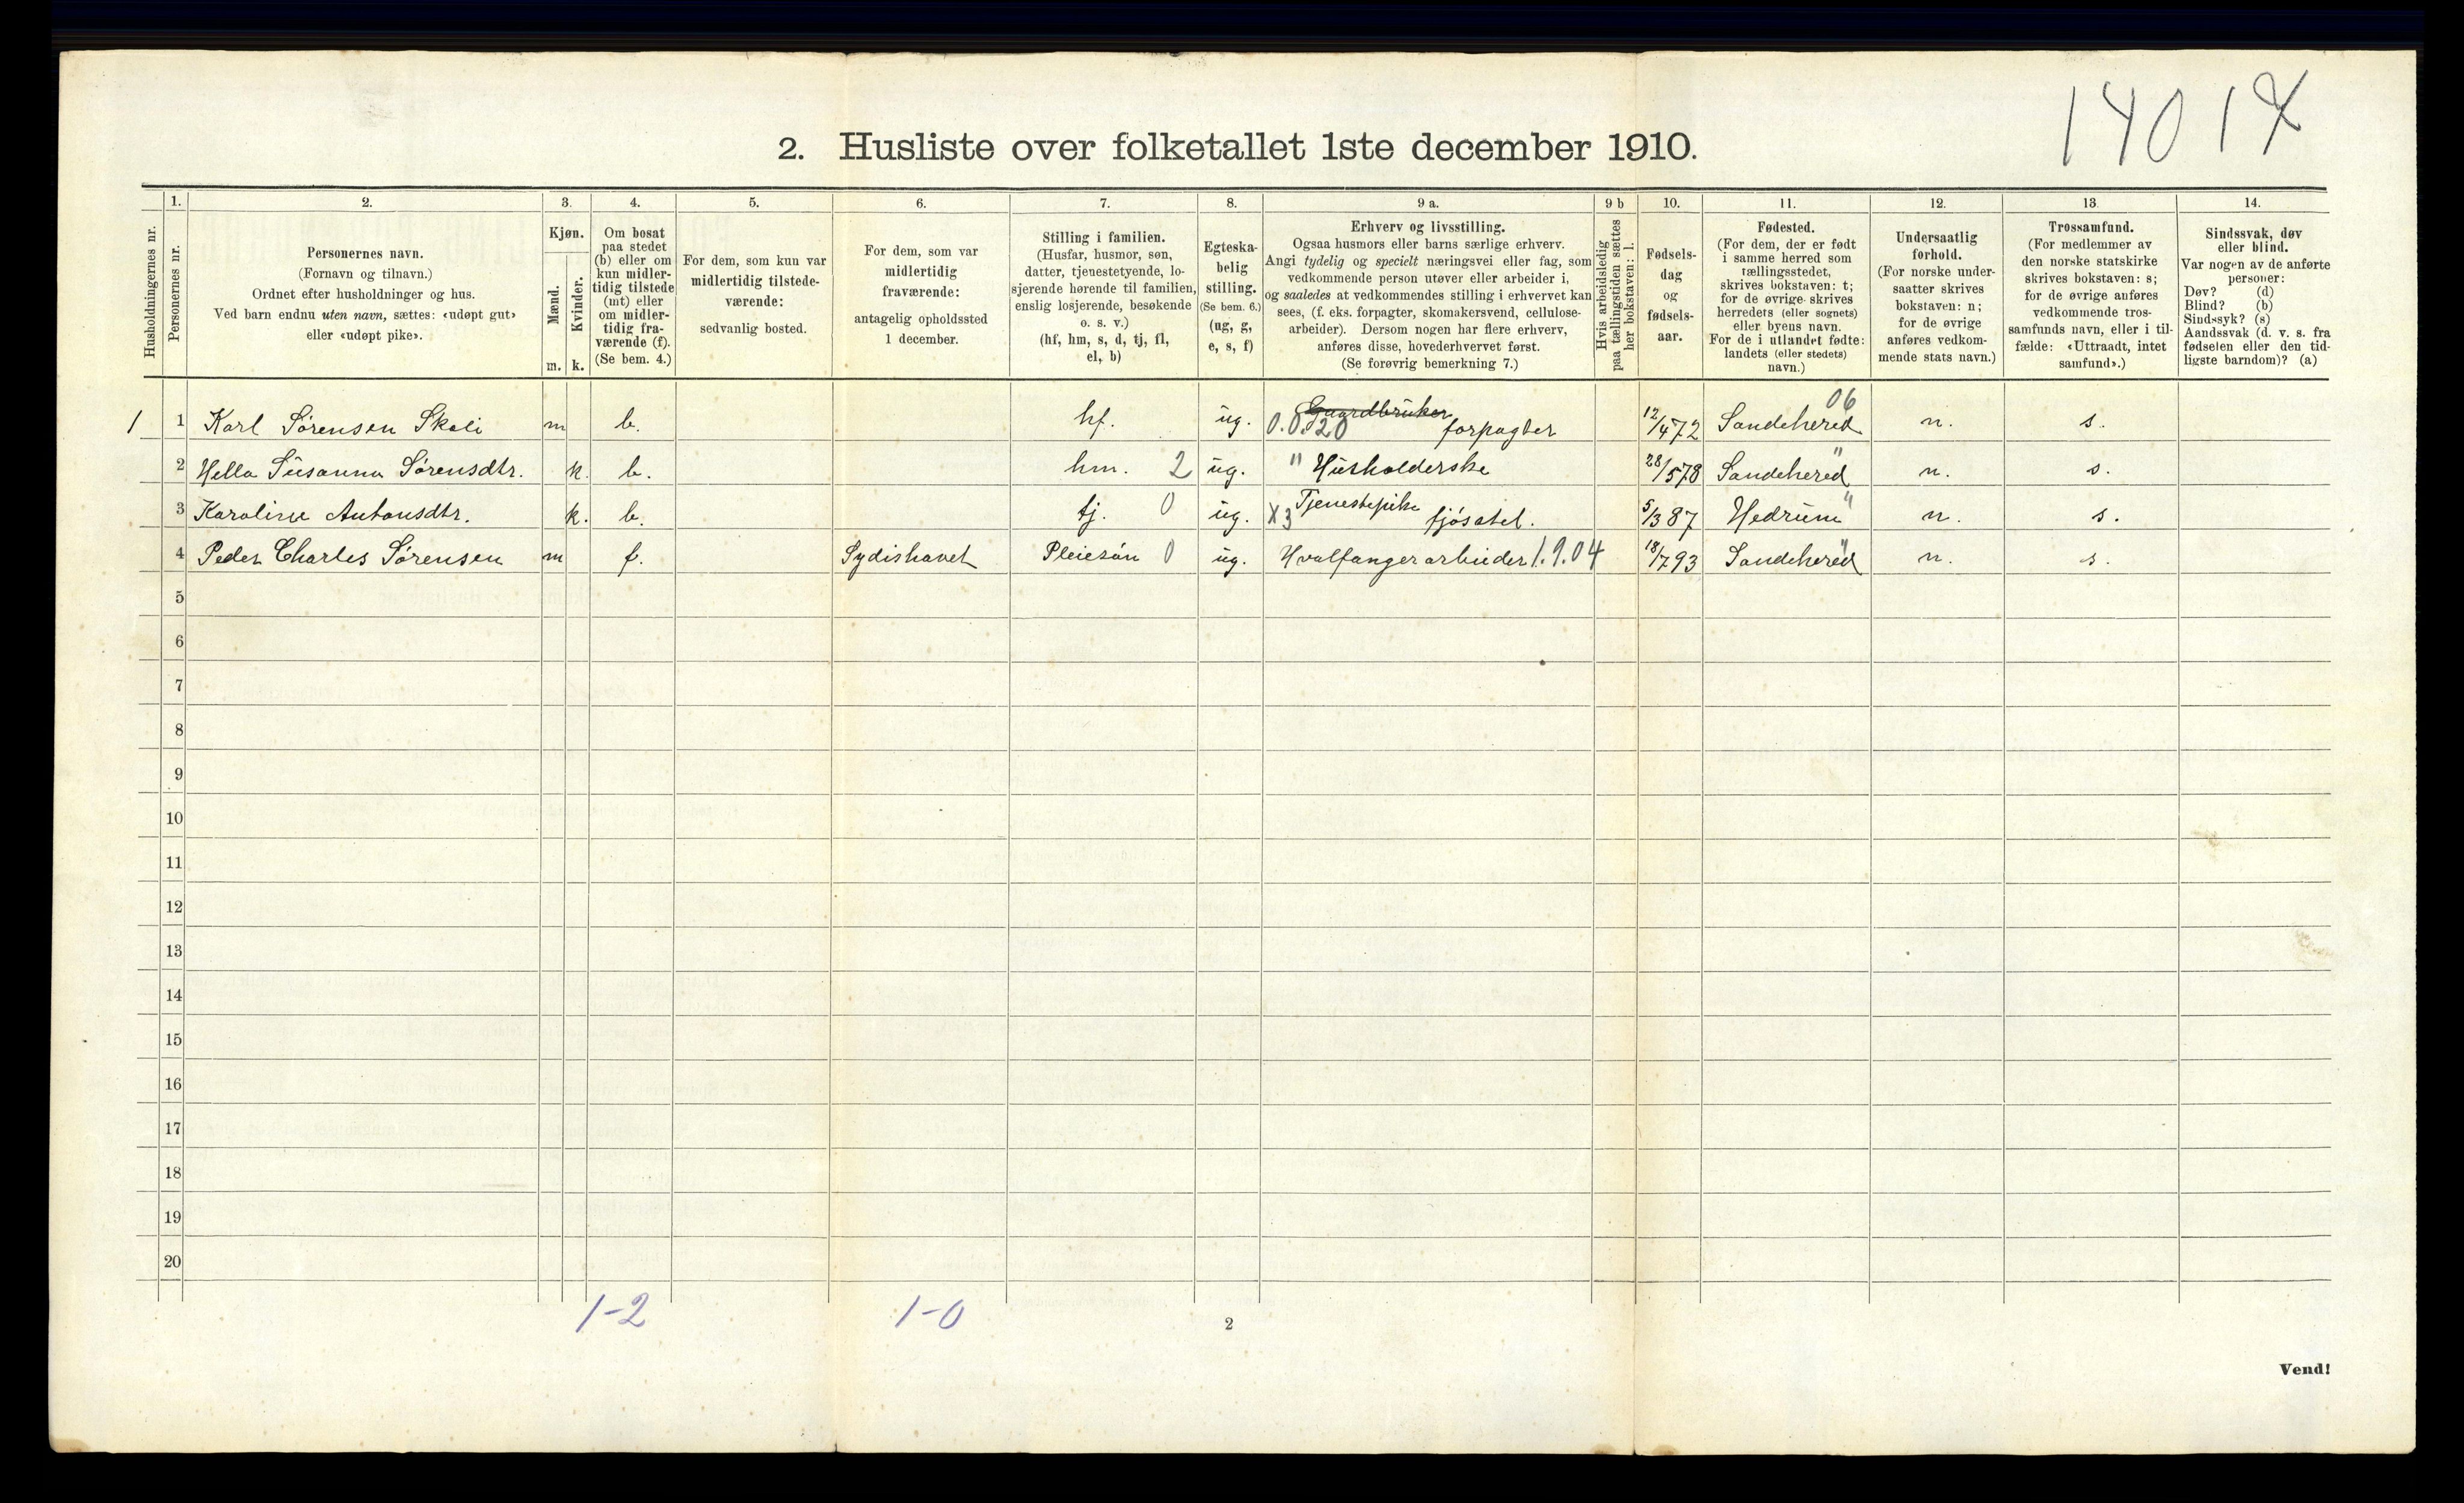 1401X
2. Husliste over folketallet 1ste december 1910.
Husholdningernes nr.
1. Personernes nr.
2. Personernes navn.
(Fornavn og tilnavn.)
Ordnet efter husholdninger og hus.
Ved barn endnu uten navn, sættes: «udøpt gut»
eller «udøpt pike».
3. Kjøn.
Mænd. m.
Kvinder. k.
4. Om bosat
paa stedet
(b) eller om
kun midler-
tidig tilstede
(mt) eller
om midler-
tidig fra-
værende (f).
(Se bem. 4.)
5. For dem, som kun var
midlertidig tilstede-
værende:
sedvanlig bosted.
6. For dem, som var
midlertidig
fraværende:
antagelig opholdssted
1 december.
7. Stilling i familien.
(Husfar, husmor, søn,
datter, tjenestetyende, lo-
sjerende hørende til familien,
enslig losjerende, besøkende
o. s. v.)
(hf, hm, s, d, tj, fl,
el, b)
8. Egteska-
belig
stilling.
(Se bem. 6.)
(ug, g,
e, s, f)
9 a. Erhverv og livsstilling.
Ogsaa husmors eller barns særlige erhverv.
Angi tydelig og specielt næringsvei eller fag, som
vedkommende person utøver eller arbeider i,
og saaledes at vedkommendes stilling i erhvervet kan
sees, (f. eks. forpagter, skomakersvend, cellulose-
arbeider). Dersom nogen har flere erhverv,
anføres disse, hovederhvervet først.
(Se forøvrig bemerkning 7.)
9 b Hvis arbeidsledig
paa tællingstiden sættes
her bokstaven: l.
10. Fødsels-
dag
og
fødsels-
aar.
11. Fødested.
(For dem, der er født
i samme herred som
tællingsstedet,
skrives bokstaven: t;
for de øvrige skrives
herredets (eller sognets)
eller byens navn.
For de i utlandet fødte:
landets (eller stedets)
navn.)
12. Undersaatlig
forhold.
(For norske under-
saatter skrives
bokstaven: n;
for de øvrige
anføres vedkom-
mende stats navn.)
13. Trossamfund.
(For medlemmer av
den norske statskirke
skrives bokstaven: s;
for de øvrige anføres
vedkommende tros-
samfunds navn, eller i til-
fælde: «Uttraadt, intet
samfund».)
14. Sindssvak, døv
eller blind.
Var nogen av de anførte
personer:
Døv? (d)
Blind? (b)
Sindssyk? (s)
Aandssvak (d. v. s. fra
fødselen eller den tid-
ligste barndom)? (a)
1 1 Karl Sørensen Skoli m b. hf. ug. Gaardbruker 0.0.20 forpagter 12/4 72 Sandeherred 06 n. s.
2 Hella Susanna Sørensdtr. k. b. hm. 2 ug. " Husholderske 28/5 78 Sandeherred " n. s.
3 Karoline Antonsdtr. k. b. tj. 0 ug. X3 Tjenestepike fjøsstel. 5/3 87 Hedrum " n. s.
4 Peder Charles Sørensen m f. Sydishavet Pleiesøn 0 ug. Hvalfangerarbeider 1.9.04 18/7 93 Sandeherred " n. s.
5
6
7
8
9
10
11
12
13
14
15
16
17
18
19
20
1-2 1-0
2
Vend!